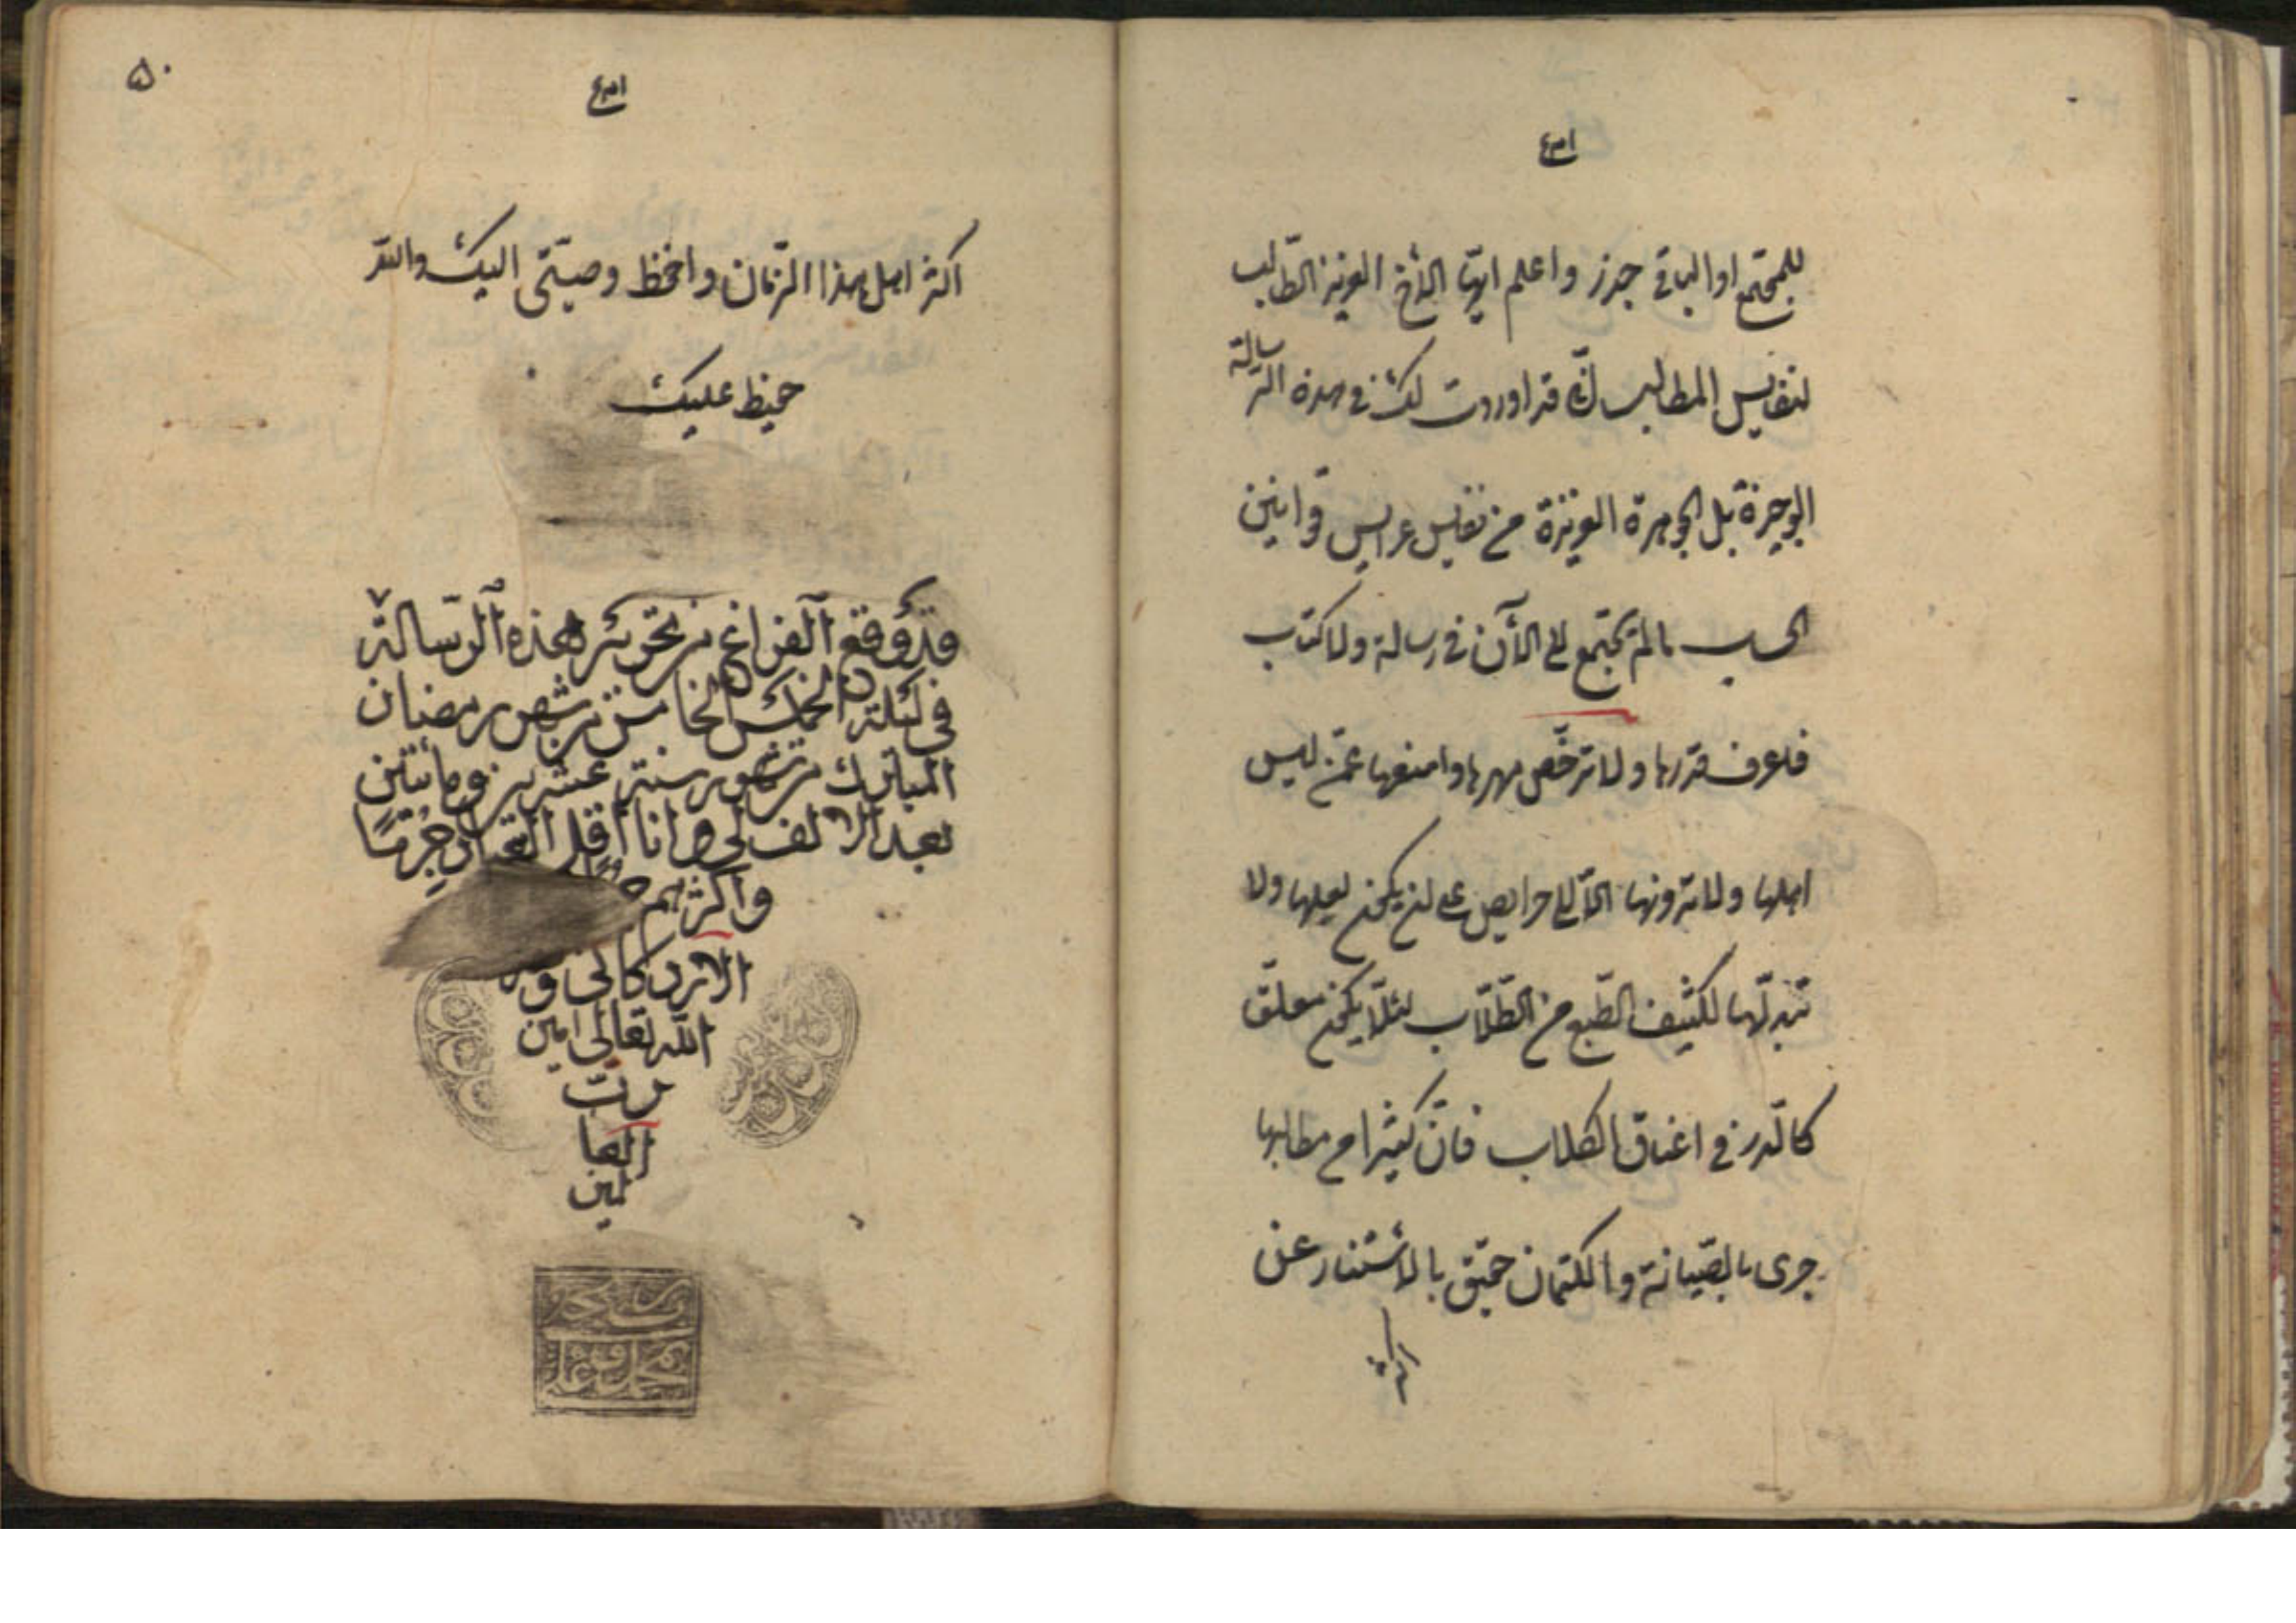 للمجتمع او الباقي جذر و اعلم ايّها الأخ العزيز الطّالب
لنفايس المطالب انّى قد اوردت لك فى هذه الرّسالة
الوجيزة بل الجوهرة العزيزة من نفايس عرايس قوانين
الحساب مالم يجتمع الى الآن فى رسالة و لا كتاب
فاعرف قدرها و لا ترخّص مهرها و امنعها عمّن ليس
اهلها و لا تزفّها الّا الى حريص على ان يكون بعلها و لا
تبذلها لكثيف الطّبع من الطّلّاب لئلّا يكون معلّق
كالدّرر فى اعناق الكلاب فانّ كثيرا من مطالبها
حرى بالصّيانة و الكتمان حقيق بالاستتار عن
اكثر
۵۰
اكثر اهل هذا الزّمان و احفظ وصيّتى اليك و اللّه
حفيظ عليك
قد وقع الفراغ من تحرير هذه الرّسالة
في ليلة الخامس من شهر رمضان
المبارك من شهور سنة عشرين و مائتين
بعد الالف و انا اقل جرمًا
و اكثرهم
الله تعالى امين
ربّ
العا
لمين